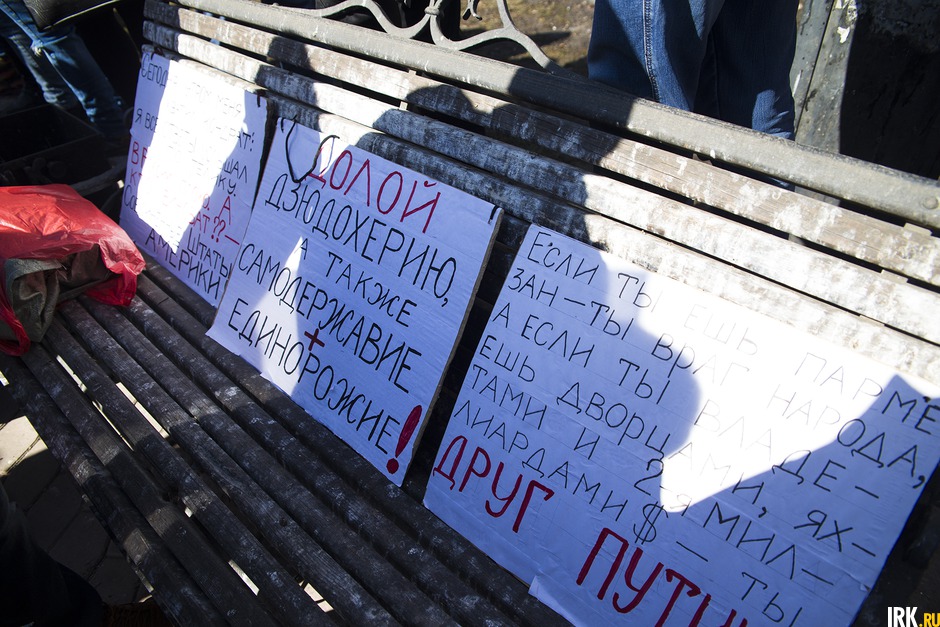 СЕГОД
Я ВС
АТ:
ШАЛ
КУ.
А
АТ??–
ШТАТЫ
АМЕРИКИ
ДОЛОЙ
ДЗЮДОХЕРИЮ,
А ТАКЖЕ
САМОДЕРЖАВИЕ
+
ЕДИНОРОЖИЕ!
ЕСЛИ ТЫ ЕШЬ ПАРМЕ
ЗАН – ТЫ ВРАГ НАРОДА,
А ЕСЛИ ТЫ ВЛАДЕ –
ЕШЬ ДВОРЦАМИ, ЯХ –
ТАМИ И 2 МИЛ –
ЛИАРДАМИ $ – ТЫ
ДРУГ ПУТИ
IRK.RU